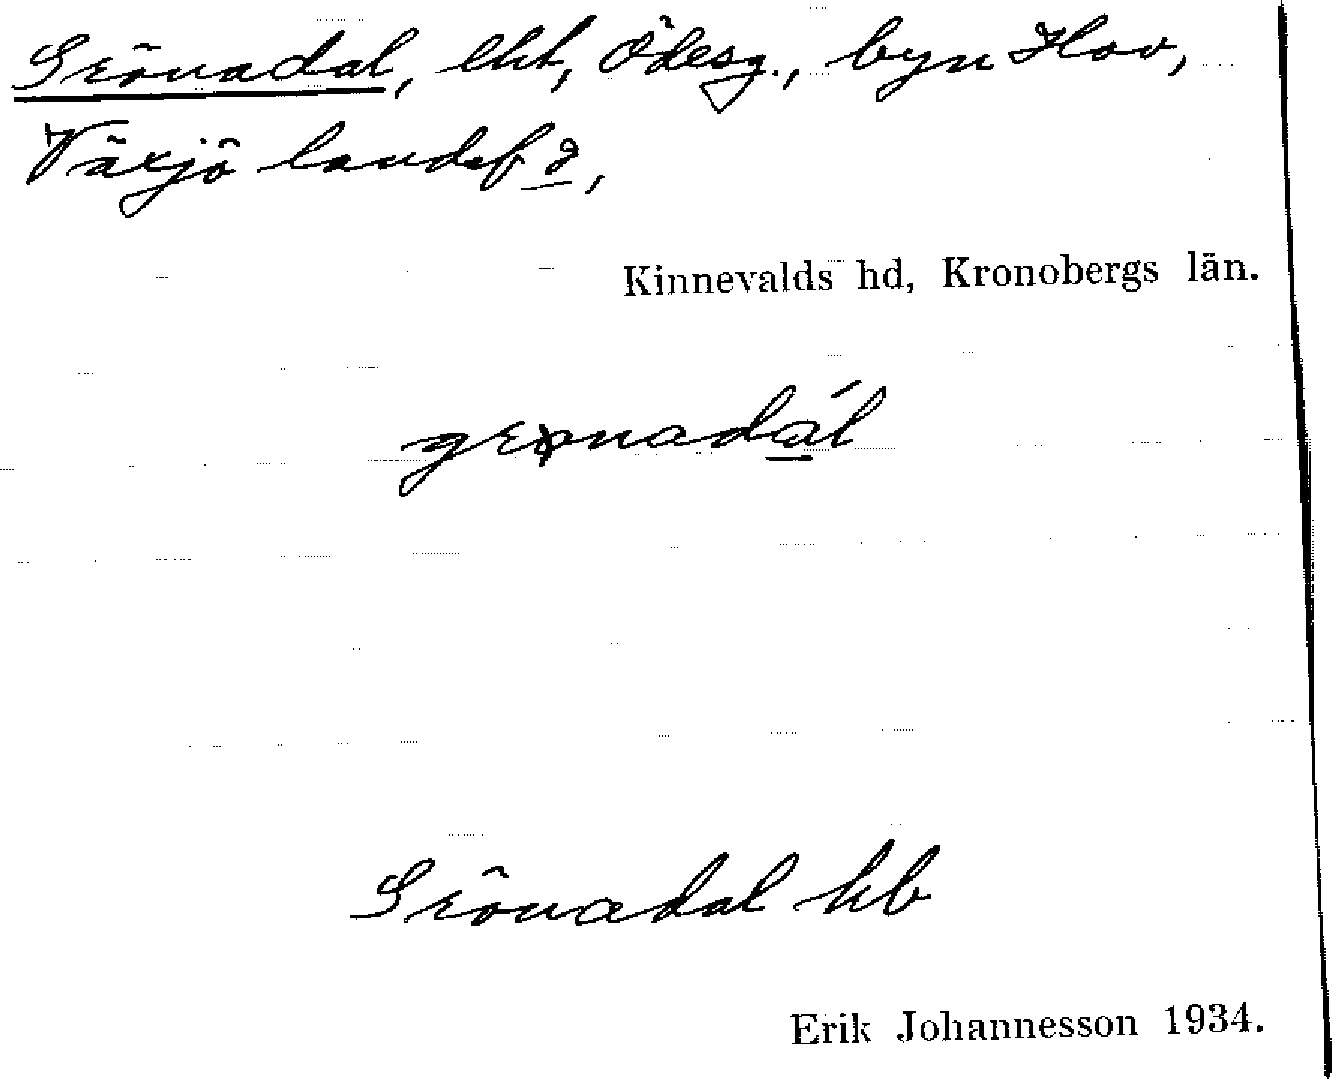 Grönadal, lht, Ödesg., byn Hov,
Växjö landsf?,
Kinnevalds hd, Kronobergs län.
grønadál
Grönadal hb
Erik Johannesson 1934.